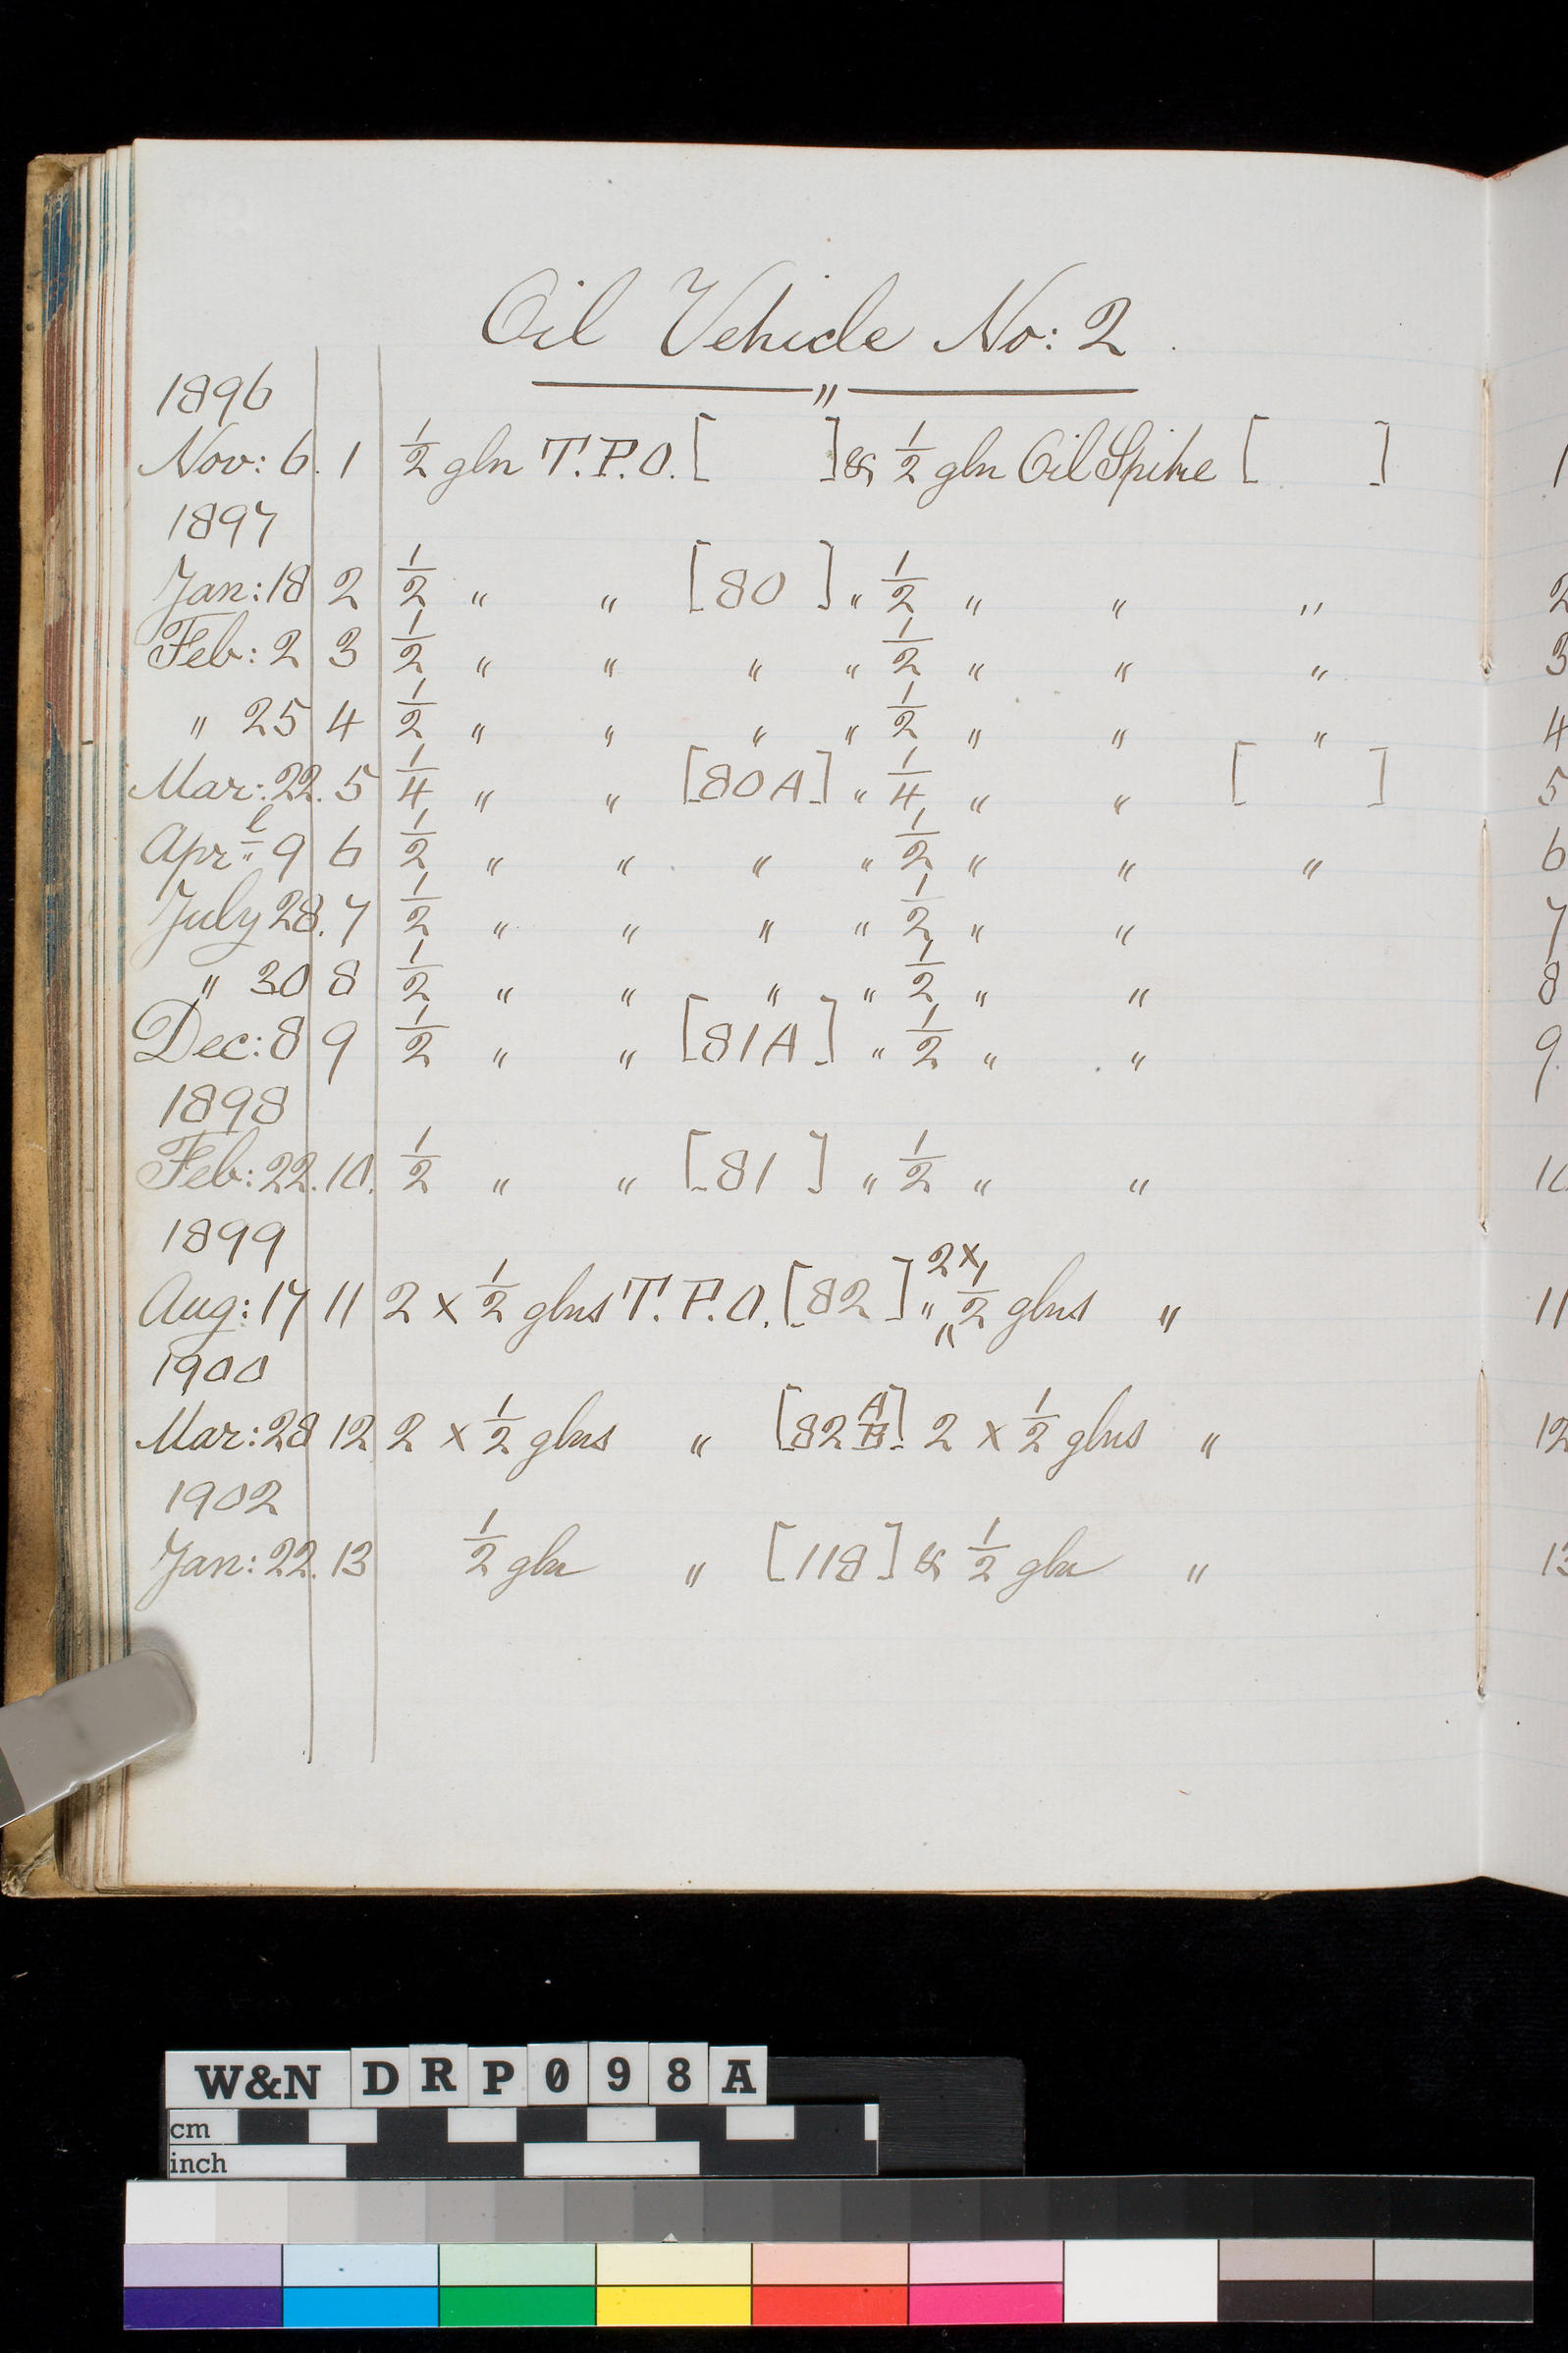 Oil Vehicle No: 2
1896
Nov: 6. 1 ½ gln T.P.O. [ ] & ½ gln Oil Spike [ ] 1
1897
Jan: 18 2 ½ " " [80 ] " ½ " " " 2
Feb: 2 3 ½ " " " " ½ " " " 3
" 25 4 ½ " " " " ½ " " " 4
Mar: 22. 5 ¼ " " [80A] " ¼ " " [ ] 5
Aprl 9 6 ½ " " " " ½ " " " 6
July 28. 7 ½ " " " " ½ " " 7
" 30 8 ½ " " " " ½ " " 8
Dec: 8 9 ½ " " [81A] " ½ " " 9
1898
Feb: 22. 10. ½ " " [81 ] " ½ " " 10
1899
Aug: 17 11 2 × ½ glns T. P. O. [82 ] " 2 × ½ glns " 11
1900
Mar: 28 12 2 × ½ glns " [82 A/B] 2 × ½ glns " 12
1902
Jan: 22. 13 ½ gln " [118] & ½ gln " 13
W&N DRP098A
cm
inch